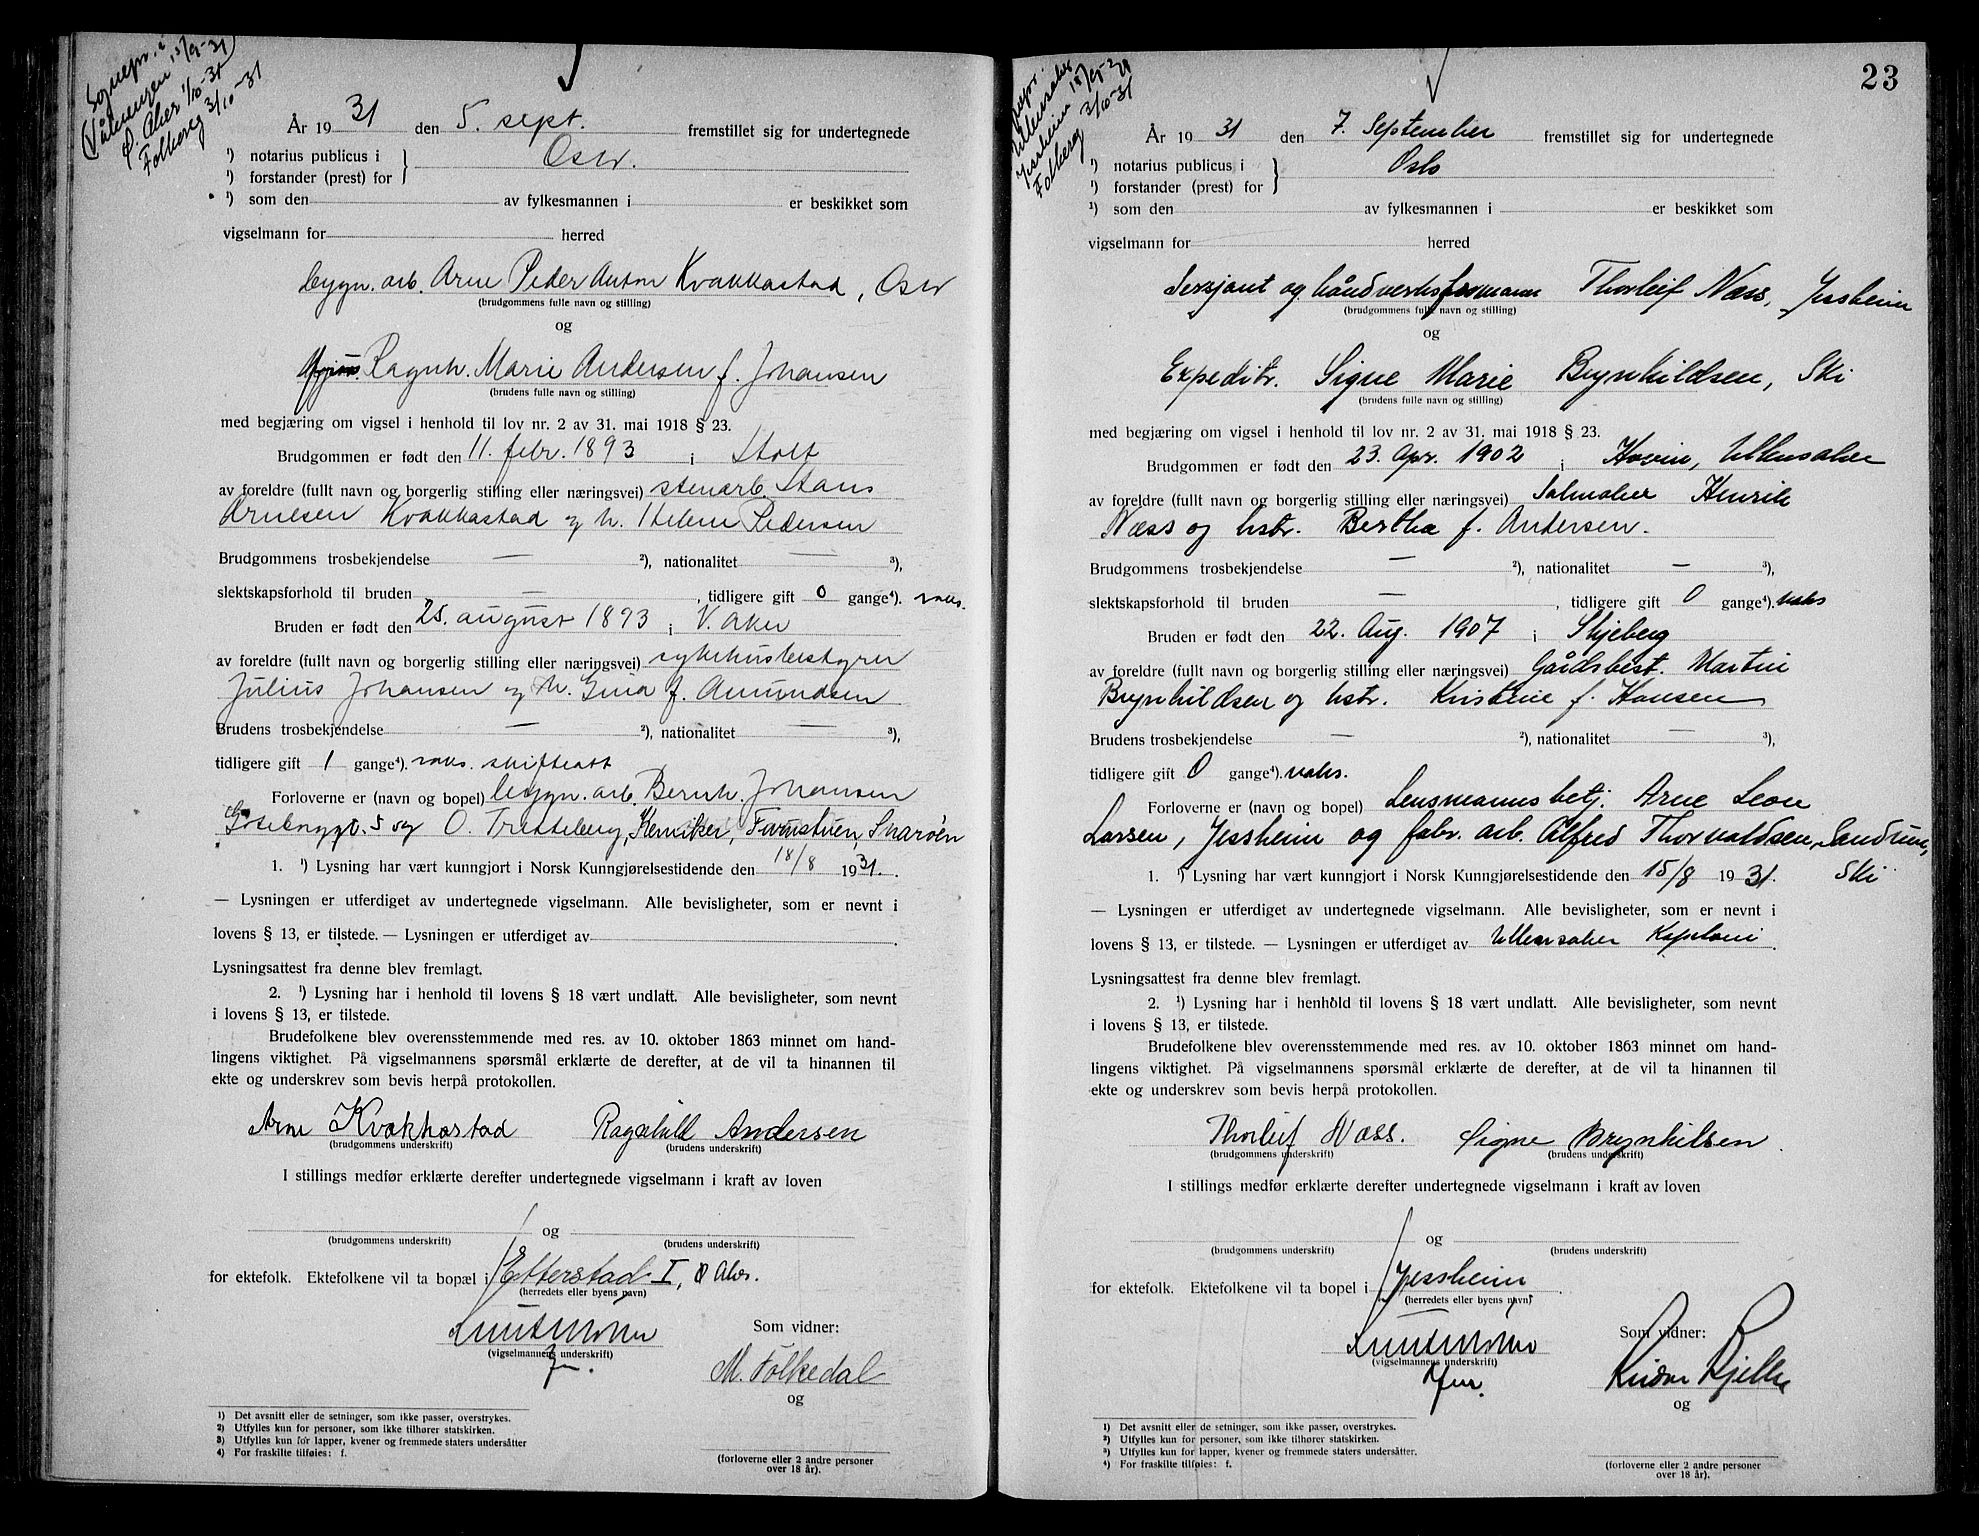 Sognepr. i
(Vålerengen 15/9-31)
Ø. Aker 1/10-31
Folkereg 3/10-31
År 1931 den 5. sept. fremstillet sig for undertegnede
¹) notarius publicus i } Oslo.
¹) forstander (prest) for
¹) som den av fylkesmannen i er beskikket som
vigselmann for herred
bygn. arb. Arne Peder Anton Kvakkestad, Oslo
(brudgommens fulle navn og stilling)
og
Ragnh. Marie Andersen f. Johansen
(brudens fulle navn og stilling)
med begjæring om vigsel i henhold til lov nr. 2 av 31. mai 1918 § 23.
Brudgommen er født den 11. febr. 1893 i Holt
av foreldre (fullt navn og borgerlig stilling eller næringsvei) stenarb. Hans
Arnesen Kvakkestad og h. Helene Pedersen
Brudgommens trosbekjendelse — ²), nationalitet — ³),
slektskapsforhold til bruden — , tidligere gift 0 gange⁴). vaks.
Bruden er født den 25. august 1893 i V. Aker
av foreldre (fullt navn og borgerlig stilling eller næringsvei) sykehusbestyrer
Julius Johansen og h. Gina f. Amundsen
Brudens trosbekjendelse — ²), nationalitet — ³),
tidligere gift 1 gange⁴). vaks. skifteatt
Forloverne er (navn og bopel) bygn. arb. Bernh. Johansen
Göteborggt. 5 og O. Tretteberg, Kemiker, Snarøen
1. ¹) Lysning har vært kunngjort i Norsk Kunngjørelsestidende den 18/8 1931.
— Lysningen er utferdiget av undertegnede vigselmann. Alle bevisligheter, som er nevnt i
lovens § 13, er tilstede. — Lysningen er utferdiget av
Lysningsattest fra denne blev fremlagt.
2. ¹) Lysning har i henhold til lovens § 18 vært undlatt. Alle bevisligheter, som nevnt
i lovens § 13, er tilstede.
Brudefolkene blev overensstemmende med res. av 10. oktober 1863 minnet om hand-
lingens viktighet. På vigselmannens spørsmål erklærte de derefter, at de vil ta hinannen til
ekte og underskrev som bevis herpå protokollen.
Arne Kvakkestad Ragnhild Andersen
(brudgommens underskrift) (brudens underskrift)
I stillings medfør erklærte derefter undertegnede vigselmann i kraft av loven
og
(brudgommens underskrift) (brudens underskrift)
for ektefolk. Ektefolkene vil ta bopæl i Etterstad I, Ø Aker.
(herredets eller byens navn)
Som vidner:
(vigselmannens underskrift)
M. Folkedal
og
1) Det avsnitt eller de setninger, som ikke passer, overstrykes.
2) Utfylles kun for personer, som ikke tilhører statskirken.
3) Utfylles kun for lapper, kvener og fremmede staters undersåtter
4) For fraskilte tilføies: f.
(forloverne eller 2 andre personer
over 18 år).
23
Sognepr.
Ullensaker
Jessheim
Folkereg 3/10-31
År 1931 den 7. September fremstillet sig for undertegnede
¹) notarius publicus i } Oslo
¹) forstander (prest) for
¹) som den av fylkesmannen i er beskikket som
vigselmann for herred
Sersjant og håndverksformann Thorleif Næss, Jessheim
(brudgommens fulle navn og stilling)
og
Expeditr. Signe Marie Brynhildsen, Ski
(brudens fulle navn og stilling)
med begjæring om vigsel i henhold til lov nr. 2 av 31. mai 1918 § 23.
Brudgommen er født den 23. Apr. 1902 i Hovin, Ullensaker
av foreldre (fullt navn og borgerlig stilling eller næringsvei) Salmaker Henrik
Næss og hstr. Bertha f. Andersen.
Brudgommens trosbekjendelse — ²), nationalitet — ³),
slektskapsforhold til bruden — , tidligere gift 0 gange⁴). vaks
Bruden er født den 22. Aug. 1907 i Skjeberg
av foreldre (fullt navn og borgerlig stilling eller næringsvei) Gårdsbest. Martin
Brynhildsen og hstr. Kristine f. Hansen
Brudens trosbekjendelse — ²), nationalitet — ³),
tidligere gift 0 gange⁴). vaks.
Forloverne er (navn og bopel) Lensmannsbetj. Arne Leon
Larsen, Jessheim og fabr. arb. Alfred Thorvaldsen, Sandrum,
Ski
1. ¹) Lysning har vært kunngjort i Norsk Kunngjørelsestidende den 15/8 1931.
— Lysningen er utferdiget av undertegnede vigselmann. Alle bevisligheter, som er nevnt i
lovens § 13, er tilstede. — Lysningen er utferdiget av Ullensaker Kapelani.
Lysningsattest fra denne blev fremlagt.
2. ¹) Lysning har i henhold til lovens § 18 vært undlatt. Alle bevisligheter, som nevnt
i lovens § 13, er tilstede.
Brudefolkene blev overensstemmende med res. av 10. oktober 1863 minnet om hand-
lingens viktighet. På vigselmannens spørsmål erklærte de derefter, at de vil ta hinannen til
ekte og underskrev som bevis herpå protokollen.
Thorleif Næss. Signe Brynhilsen
(brudgommens underskrift) (brudens underskrift)
I stillings medfør erklærte derefter undertegnede vigselmann i kraft av loven
og
(brudgommens underskrift) (brudens underskrift)
for ektefolk. Ektefolkene vil ta bopel i Jessheim
(herredets eller byens navn)
Som vidner:
(vigselmannens underskrift)
og
1) Det avsnitt eller de setninger, som ikke passer, overstrykes.
2) Utfylles kun for personer, som ikke tilhører statskirken.
3) Utfylles kun for lapper, kvener og fremmede staters undersåtter.
4) For fraskilte tilføies: f.
(forloverne eller 2 andre personer
over 18 år).